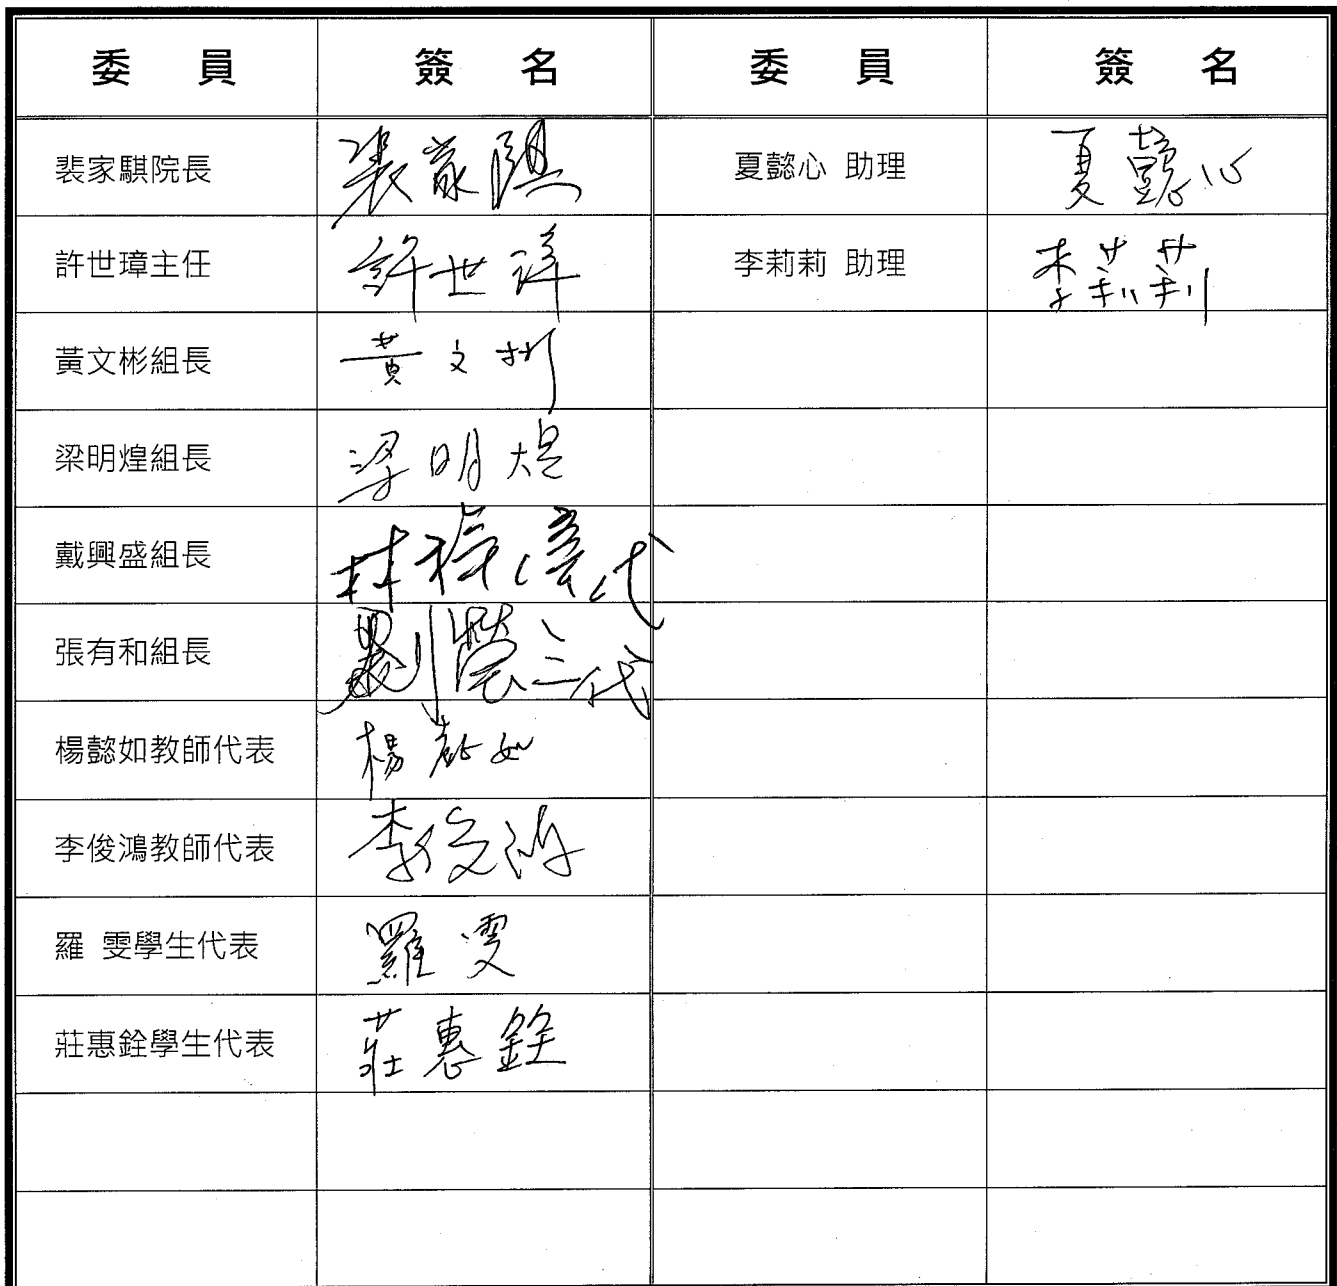 委員 簽名 委員 簽名
裴家騏院長 裴家騏 夏懿心 助理 夏懿心
許世璋主任 許世璋 李莉莉 助理 李莉莉
黃文彬組長 黃文彬
梁明煌組長 梁明煌
戴興盛組長 林 代
張有和組長 劉瑩三代
楊懿如教師代表 楊懿如
李俊鴻教師代表 李俊鴻
羅 雯學生代表 羅雯
莊惠銓學生代表 莊惠銓